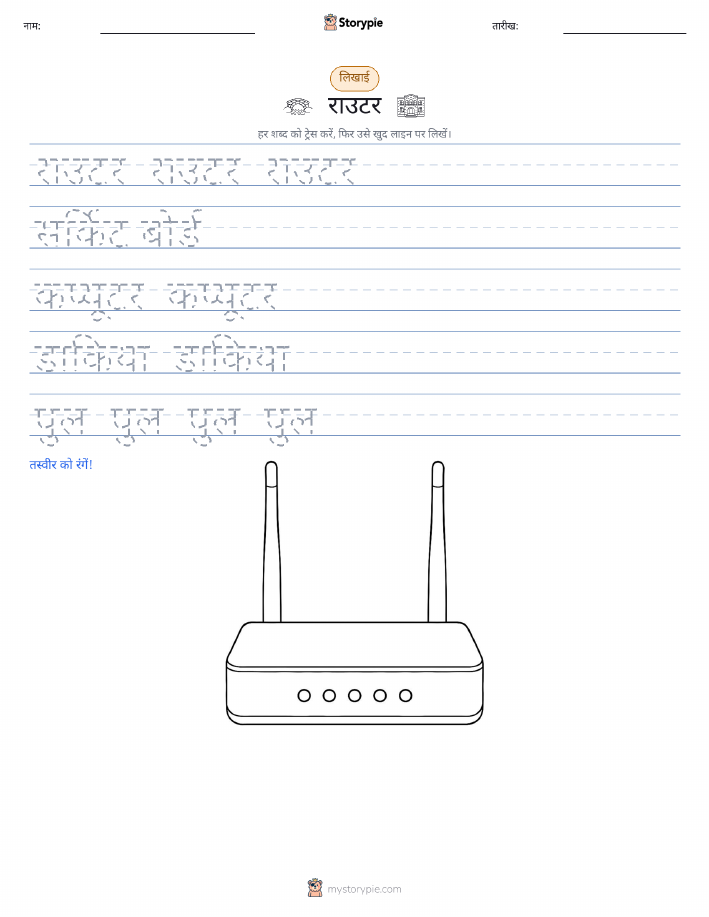 नाम:
Storypie
तारीख:
लिखाई
राउटर
हर शब्द को ट्रेस करें, फिर उसे खुद लाइन पर लिखें।
राउटर राउटर राउटर
सर्किट बोर्ड
कंप्यूटर कंप्यूटर
डाकिया डाकिया
पुल पुल पुल पुल
तस्वीर को रंगें!
mystorypie.com